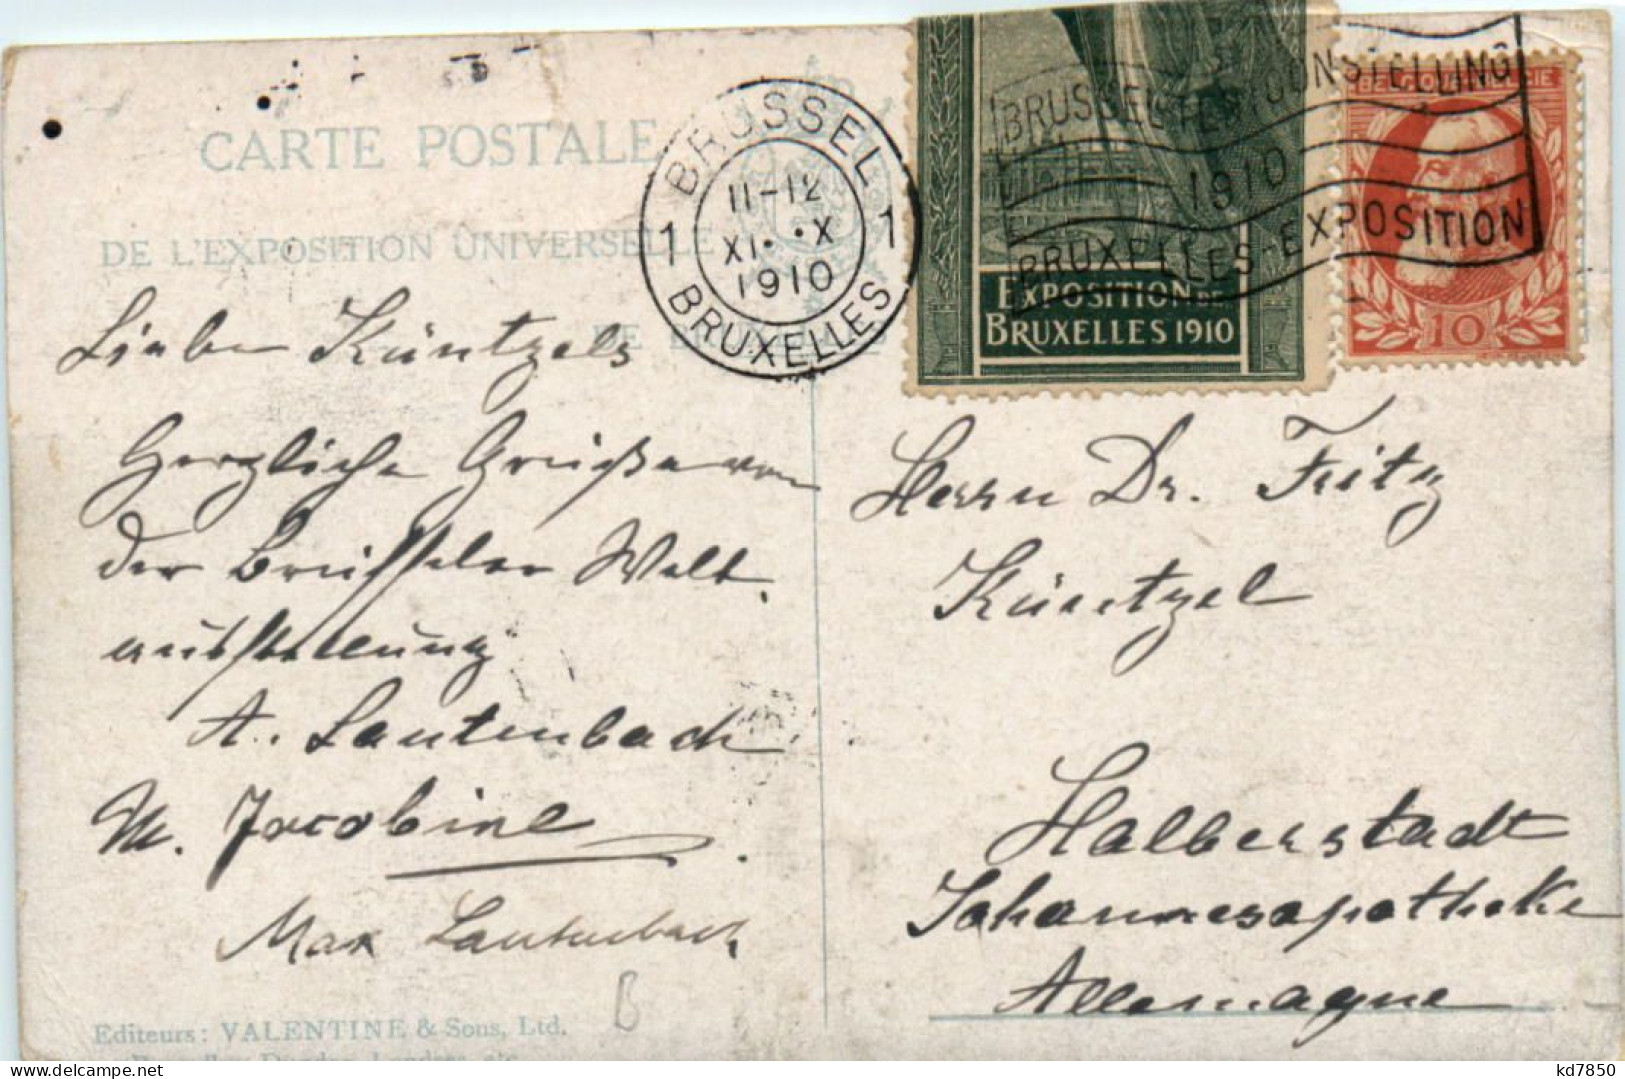 CARTE POSTALE
DE L'EXPOSITION UNIVERSELLE
DE
BRUSSEL
11-12
1 XI. X 1
1910
BRUXELLES
BRUSSEL TENTOONSTELLING
1910
BRUXELLES-EXPOSITION
EXPOSITION DE
BRUXELLES 1910
BELGIQUE BELGIE
10
Liebe Küntzels
Herzliche Grüße von
der Brüsseler Welt
ausstellung
A. Lautenbach
M. Jacobine
Max Lautenbach
B
Herrn Dr. Fritz
Küntzel
Halberstadt
Johannesapotheke
Allemagne
Editeurs: VALENTINE & Sons, Ltd.
Bruxelles, Dundee, Londres, etc.
kd7850